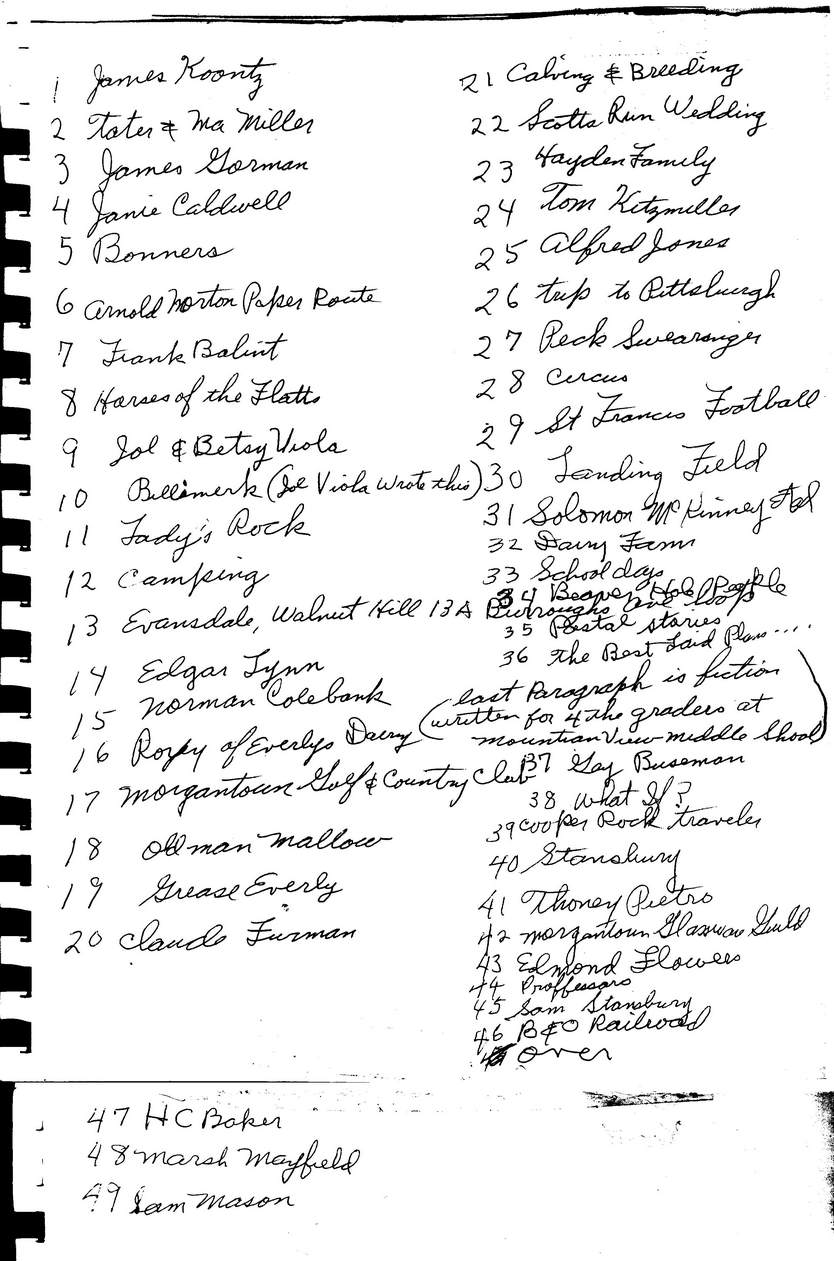 1 James Koontz
2 Tater & Ma Miller
3 James Gorman
4 Janie Caldwell
5 Bonners
6 Arnold Morton Paper Route
7 Frank Balint
8 Horses of the Flatts
9 Joe & Betsy Viola
10 Billsmerk (Joe Viola wrote this)
11 Lady's Rock
12 Camping
13 Evansdale, Walnut Hill 13A Burroughs ave loop
14 Edgar Lynn
15 Norman Colebank
16 of Everlys Dairy
17 Morgantown Golf & Country Club
18 Old man Mallow
19 Grease Everly
20 Claude Furman
21 Calving & Breeding
22 Scotts Run Wedding
23 Hayden Family
24 Tom Kitzmiller
25 Alfred Jones
26 trip to Pittsburgh
27 Peck Swearinger
28 circus
29 St Francis Football
30 Landing Field
31 Solomon McKinney
32 Dairy Farm
33 School days
34 Beaver Hole People
35 Postal stories
36 the Best Laid Plans....
(last Paragraph is fiction
written for 4the graders at
Mountian View middle Shool)
37 Gay Buseman
38 What If?
39 Cooper Rock traveler
40 Stansbury
41 Thoney Pietro
42 Morgantown Glassware Guild
43 Edmond Flowers
44 Proffessors
45 Sam Stansbury
46 B&O Railroad
over
47 HC Baker
48 Marsh Mayfield
49 Sam Mason